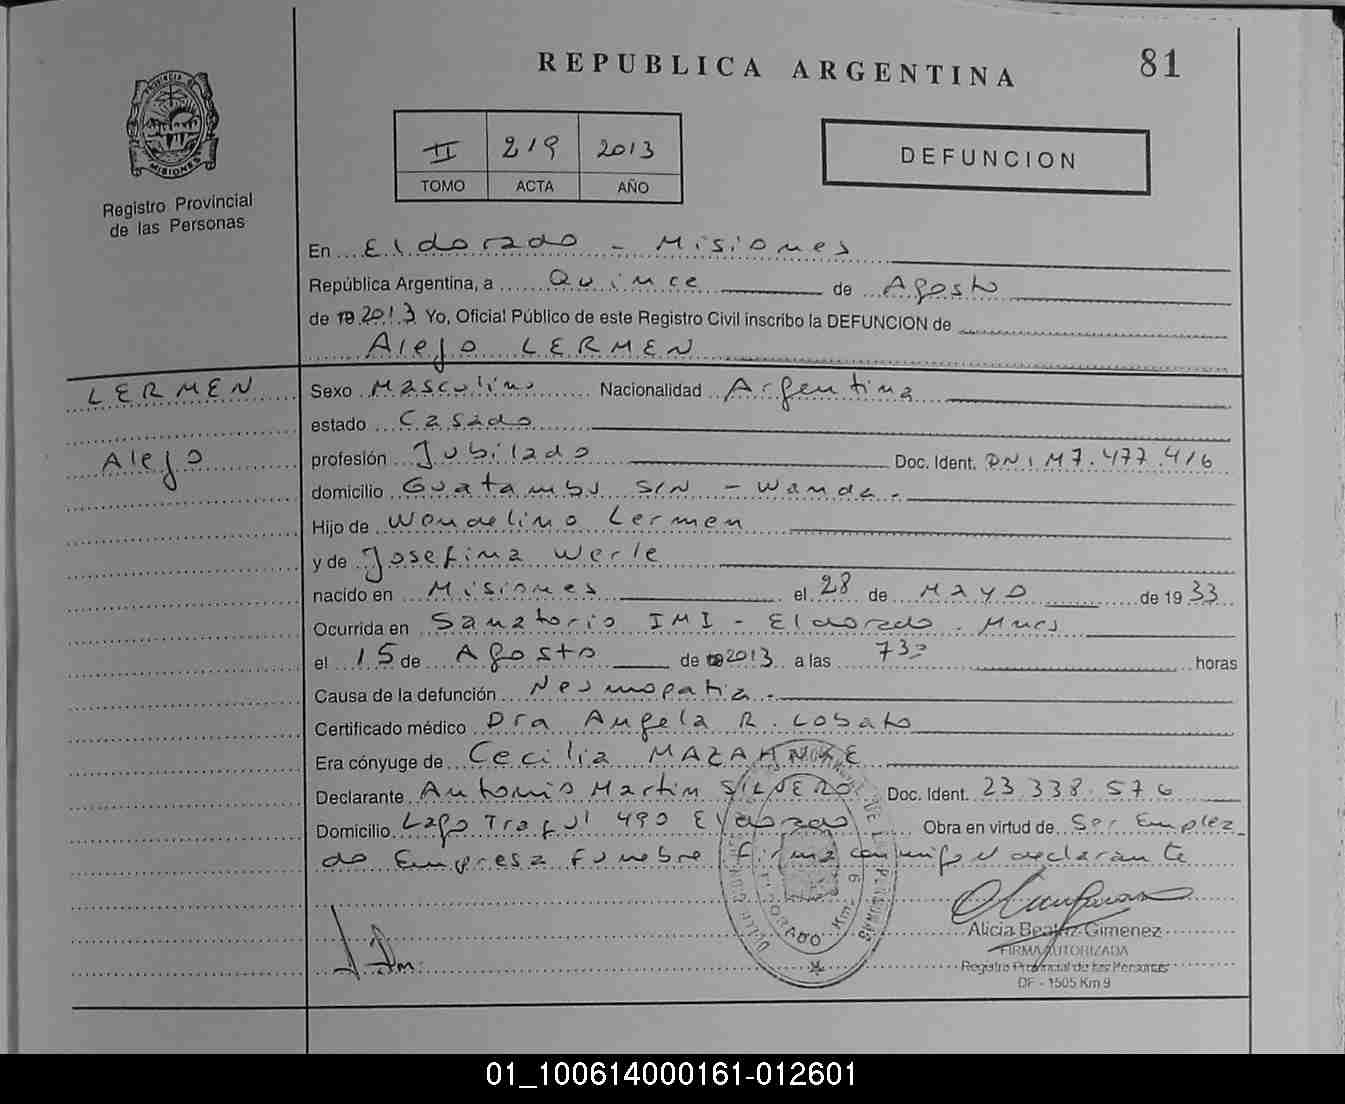 REPUBLICA ARGENTINA
81
PROVINCIA DE
MISIONES
Registro Provincial
de las Personas
II 219 2013
TOMO ACTA AÑO
DEFUNCION
En Eldorado - Misiones
República Argentina, a Quince de Agosto
de 2013 Yo, Oficial Público de este Registro Civil inscribo la DEFUNCION de
Alejo LERMEN
LERMEN
Alejo
Sexo Masculino Nacionalidad Argentina
estado Casado
profesión Jubilado Doc. Ident. DNI M7.477.416
domicilio Guatambu S/N - Wanda.
Hijo de Wendelino Lermen
y de Josefina Werle
nacido en Misiones el 28 de MAYO de 1933
Ocurrida en Sanatorio IMI - Eldorado. Mnes
el 15 de Agosto de 2013 a las 730 horas
Causa de la defunción Neumopatia.
Certificado médico Dra Angela R. Lobato
Era cónyuge de Cecilia MAZAHNKE
Declarante Antonio Martin SILVERO Doc. Ident. 23.338.576
Domicilio Lago Traful 490 Eldorado Obra en virtud de Ser Emplea
do Empresa Funebre firma conmigo el declarante
ELDORADO Km. 9
Alicia Beatriz Gimenez
FIRMA AUTORIZADA
Registro Provincial de las Personas
DF - 1505 Km 9
01_100614000161-012601